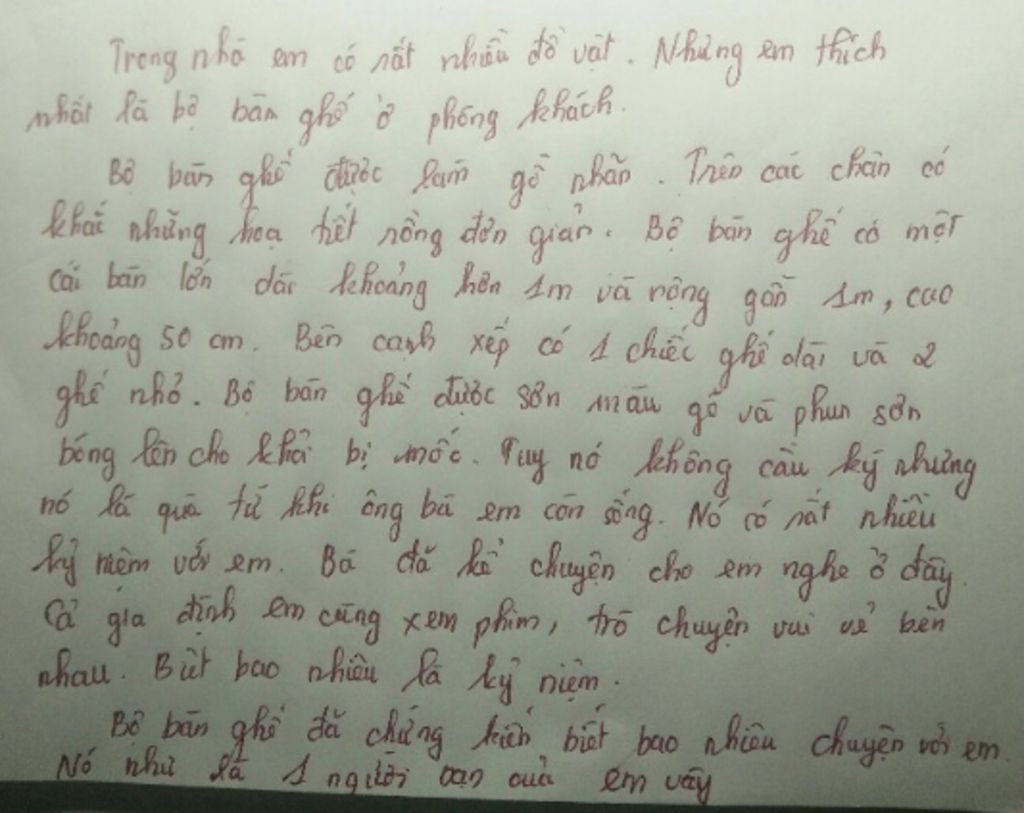 Trong nhà em có rất nhiều đồ vật. Nhưng em thích
nhất là bộ bàn ghế ở phòng khách.
Bộ bàn ghế được làm gỗ nhãn. Trên các chân có
khắc những họa tiết rồng đơn giản. Bộ bàn ghế có một
cái bàn lớn dài khoảng hơn 1m và rộng gần 1m, cao
khoảng 50 cm. Bên cạnh xếp có 1 chiếc ghế dài và 2
ghế nhỏ. Bộ bàn ghế được sơn màu gỗ và phun sơn
bóng lên cho khỏi bị mốc. Tuy nó không cầu kỳ nhưng
nó là quà từ khi ông bà em còn sống. Nó có rất nhiều
kỷ niệm với em. Bà đã kể chuyện cho em nghe ở đây.
Cả gia đình em cùng xem phim, trò chuyện vui vẻ bên
nhau. Biết bao nhiêu là kỷ niệm.
Bộ bàn ghế đã chứng kiến biết bao nhiêu chuyện với em.
Nó như là 1 người bạn của em vậy